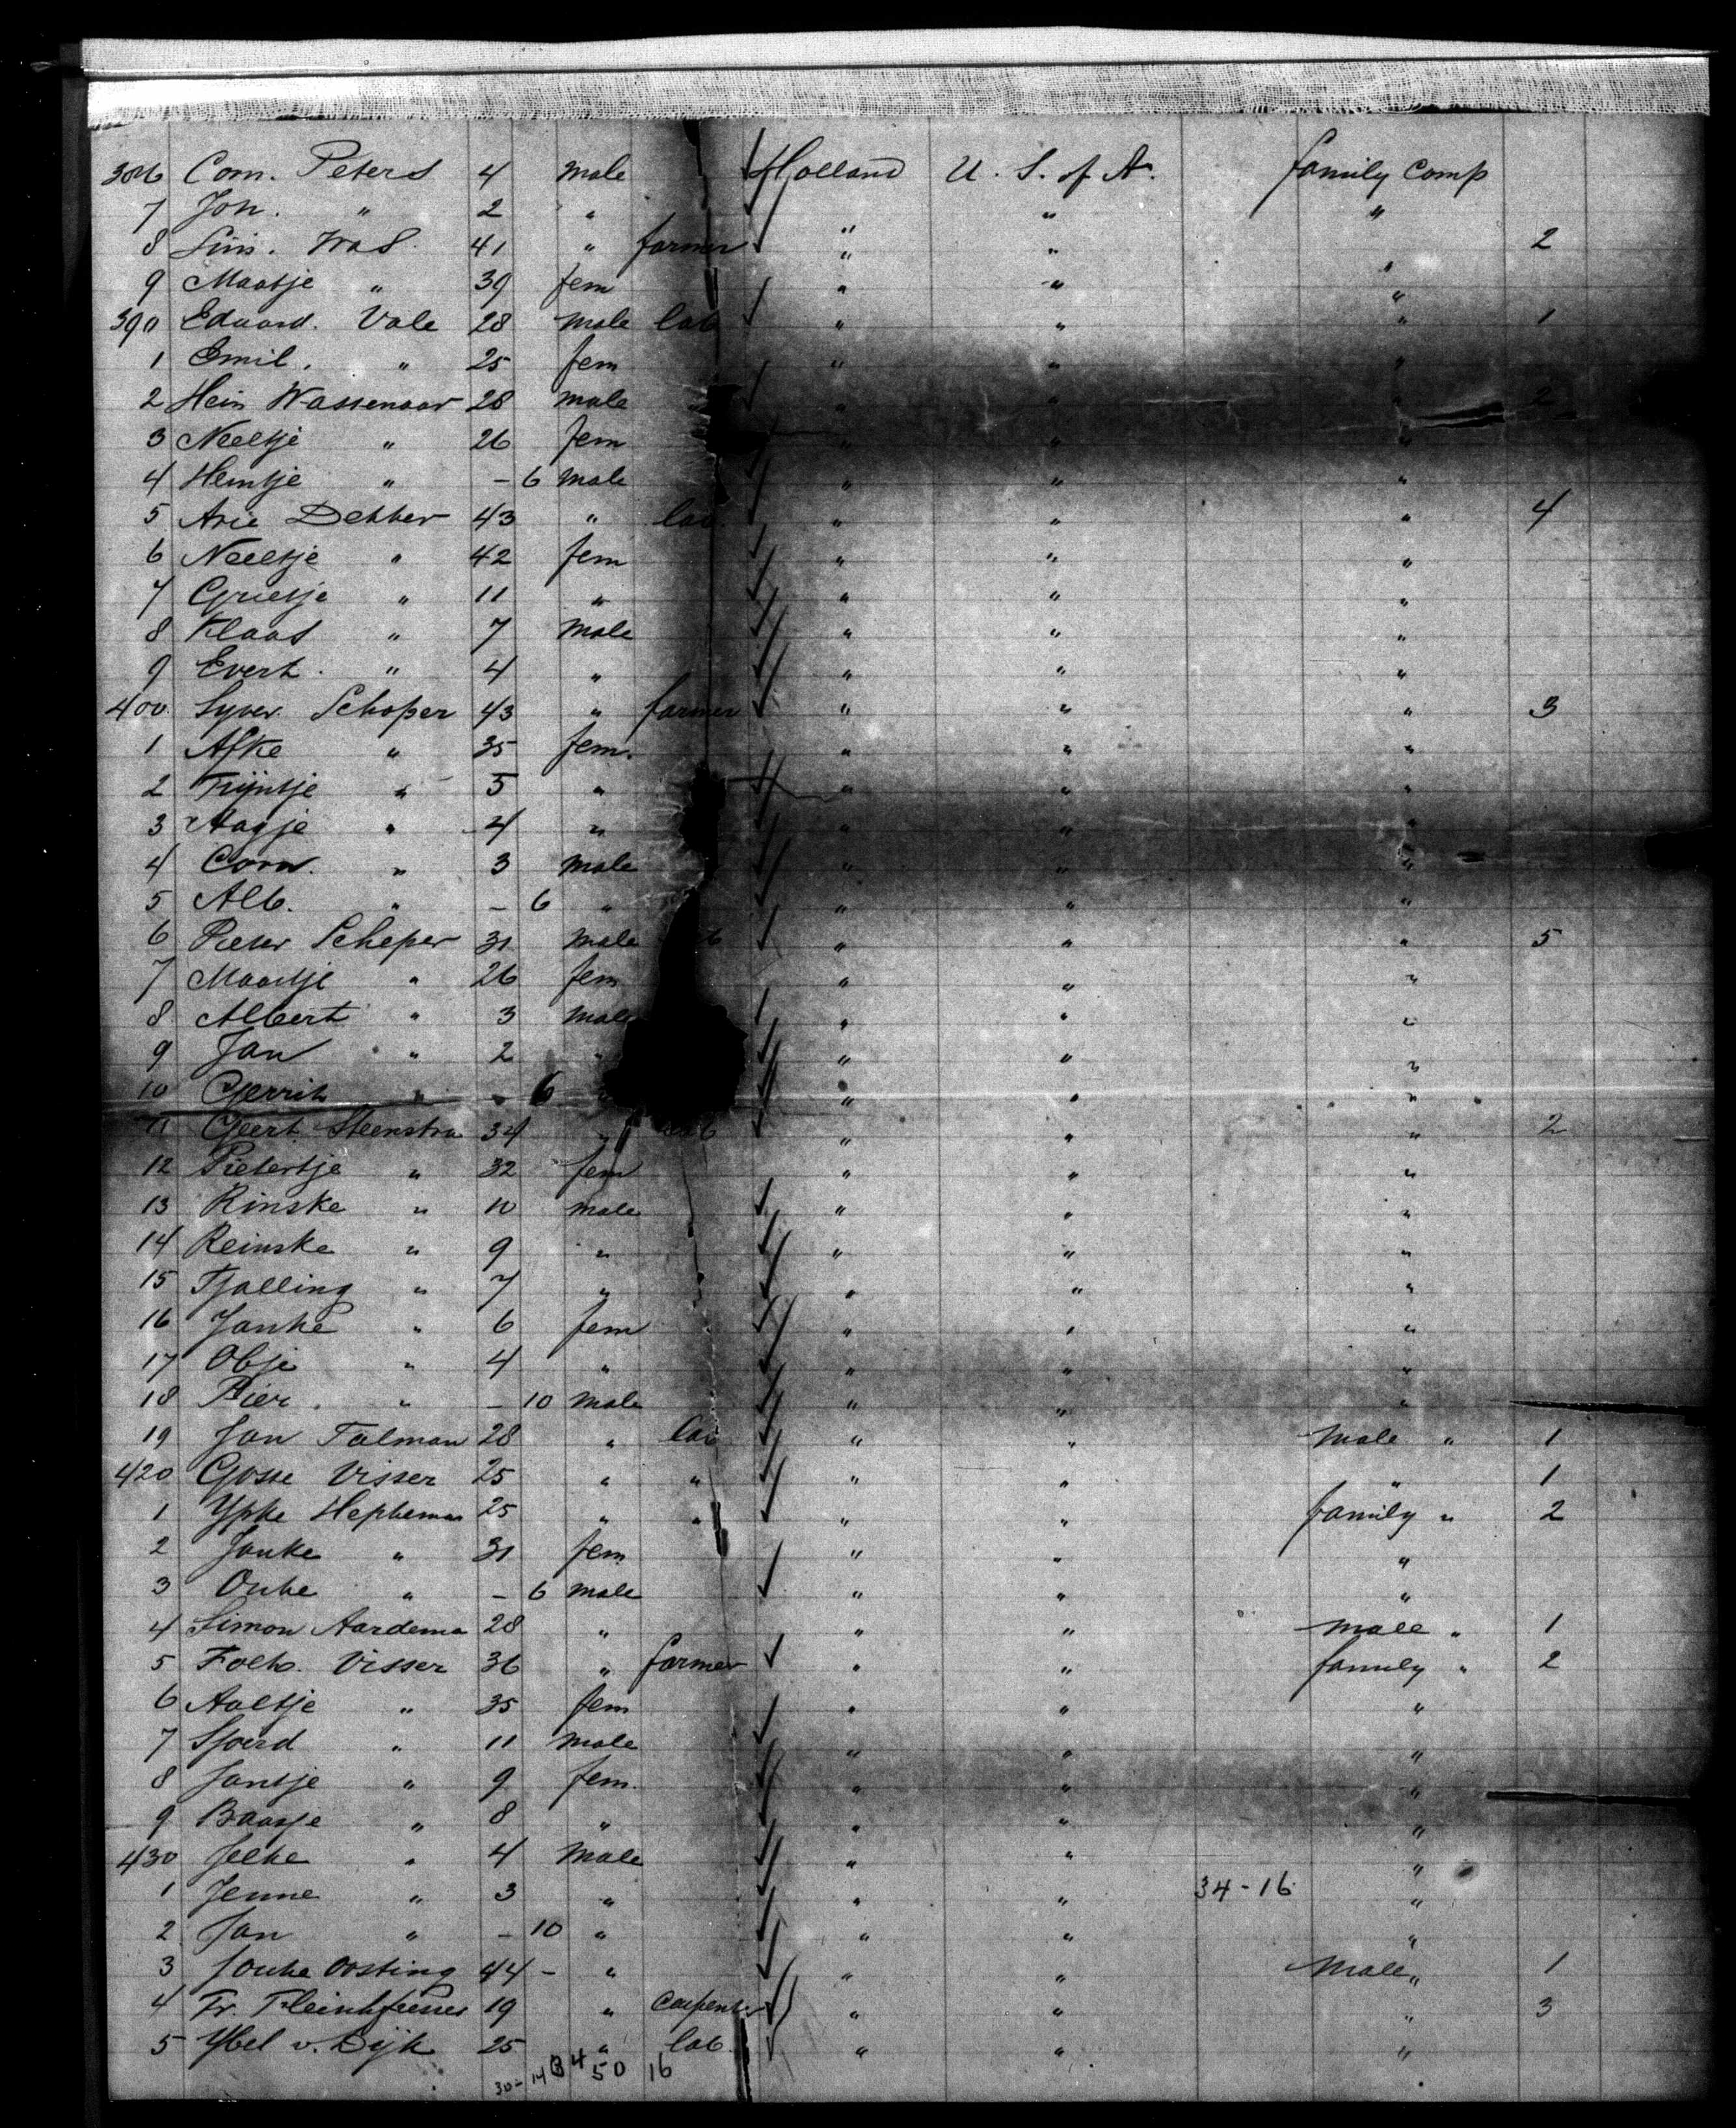 386 Corn. Peters 4 male Holland U. S. of A. family comp
7 Joh. " 2 " " " "
8 41 " farmer " " " 2
9 Maatje " 39 fem " " "
390 Eduard. Vale 28 male lab " " " 1
1 Emil. " 25 fem " " "
2 Hein Wassenaar 28 male " " " " 2
3 Neeltje " 26 fem " " "
4 Heintje " – 6 male " " "
5 Arie Dekker 43 " lab. " " " 4
6 Neeltje " 42 fem " " "
7 Grietje " 11 " " " "
8 Klaas " 7 male " " "
9 Evert. " 4 " " " "
400 Syver Schoper 43 " farmer " " " 3
1 Afke " 35 fem. " " "
2 Trijntje " 5 " " " "
3 Aagje " 4 " " " "
4 Corn. " 3 male " " "
5 Alb. " – 6 " " " "
6 Pieter Scheper 31 male " " " 5
7 Maartje " 26 fem " " "
8 Albert " 3 male " " "
9 Jan " 2 " " " "
10 Gerrit " - 6 " " "
11 Geert Steenstra 34 " lab " " " 2
12 Pietertje " 32 fem " " "
13 Rinske " 10 male " " "
14 Reinske " 9 " " " "
15 Tjalling " 7 " " " "
16 Janke " 6 fem " " "
17 Obje " 4 " " " "
18 Pier. " – 10 male " " "
19 Jan Talman 28 " lab " " male " 1
420 Gosse Visser 25 " " " " " 1
1 Ypke 25 " " " " family " 2
2 Janke " 31 fem " " "
3 Onke " – 6 male " " "
4 Simon Aardema 28 " " " male " 1
5 Folk. Visser 36 " farmer " " family " 2
6 Aaltje " 35 fem " " "
7 Sjoerd " 11 male " " "
8 Jantje " 9 fem. " " "
9 Baatje " 8 " " " "
430 Jelke " 4 male " " "
1 Jenne " 3 " " " 34-16 "
2 Jan " – 10 " " " "
3 Jouke Oosting 44 – " " " Male " 1
4 Fr. 19 " Carpenter " " " 3
5 Ybel v. Dijk 25 " lab. " " "
30- 14 50 16